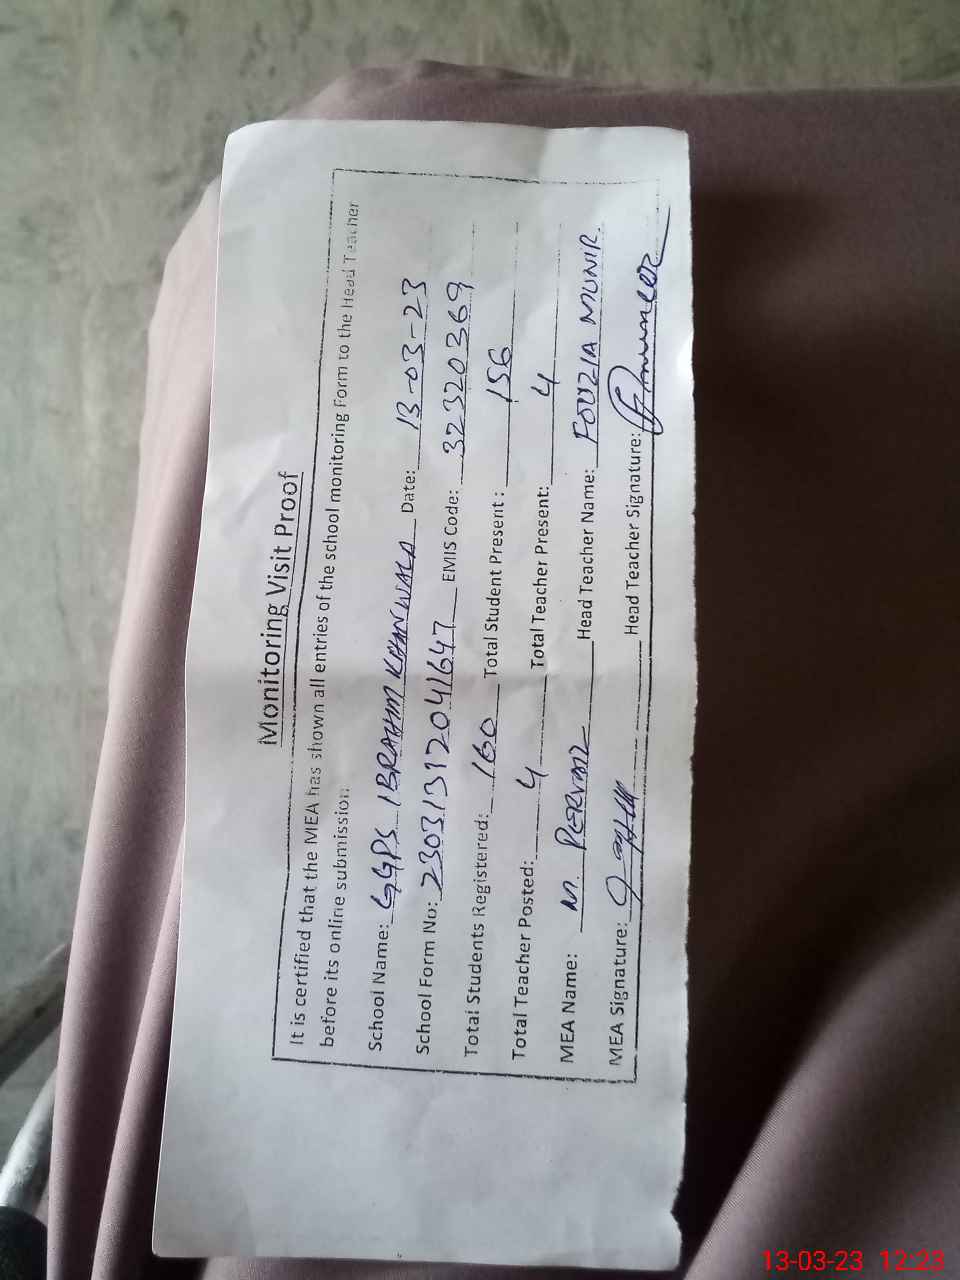 Monitoring Visit Proof
It is certified that the MEA has shown all entries of the school monitoring Form to the Head Teacher
before its online submission:
School Name: GGPS IBRAHIM KHAN WALA Date: 13-03-23
School Form No: 2303131204 1647 EMIS Code: 32320369
Total Students Registered: 160 Total Student Present: 156
Total Teacher Posted: 4 Total Teacher Present: 4
MEA Name: M. PERVAIZ Head Teacher Name: FOUZIA MUNIR.
MEA Signature: Head Teacher Signature:
13-03-23 12:23